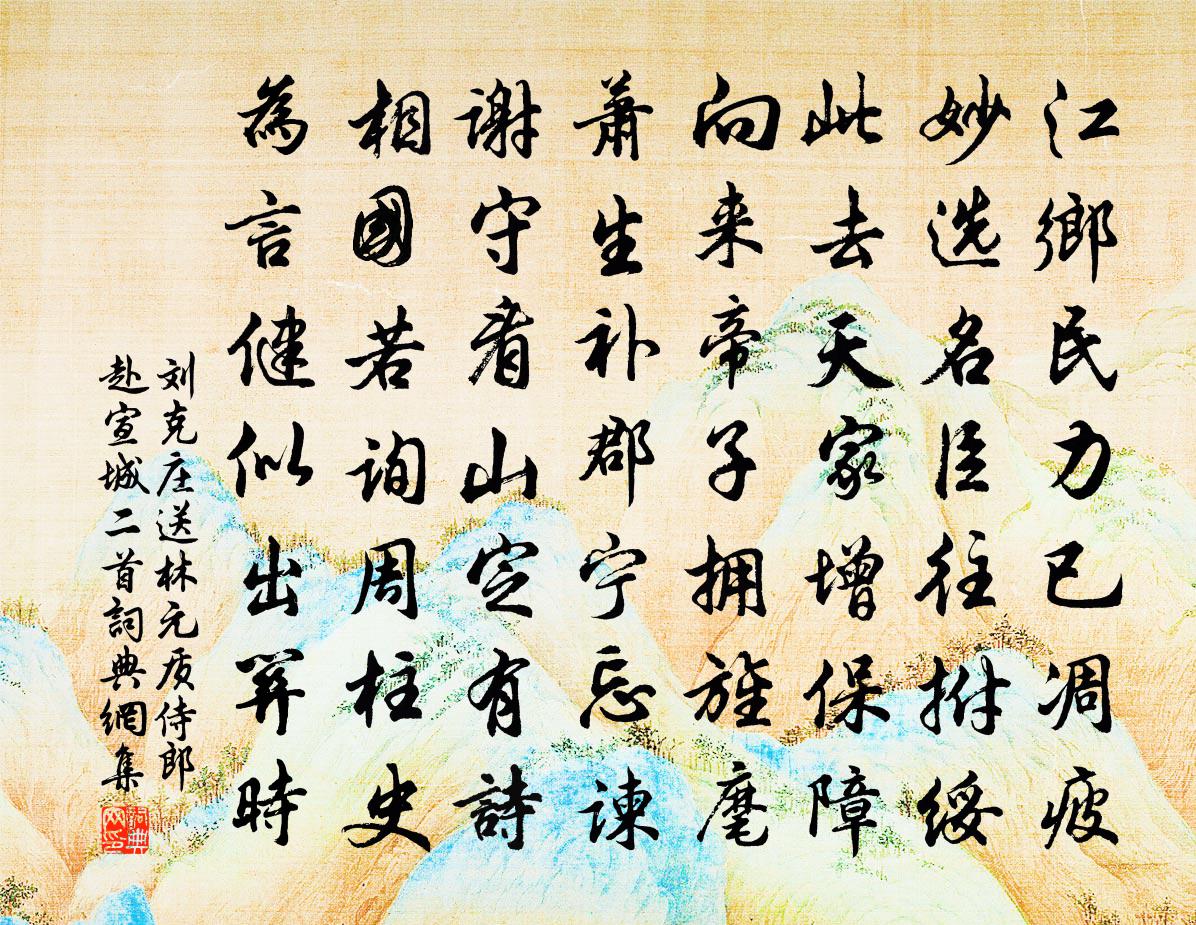 江鄉民力已凋疲
妙选名臣往拊绥
此去天家增保障
向来帝子拥旌麾
萧生补郡宁忘谏
謝守看山定有詩
相國若询周柱史
為言健似出关時
刘克庄送林元质侍郎
赴宣城二首詞典網集